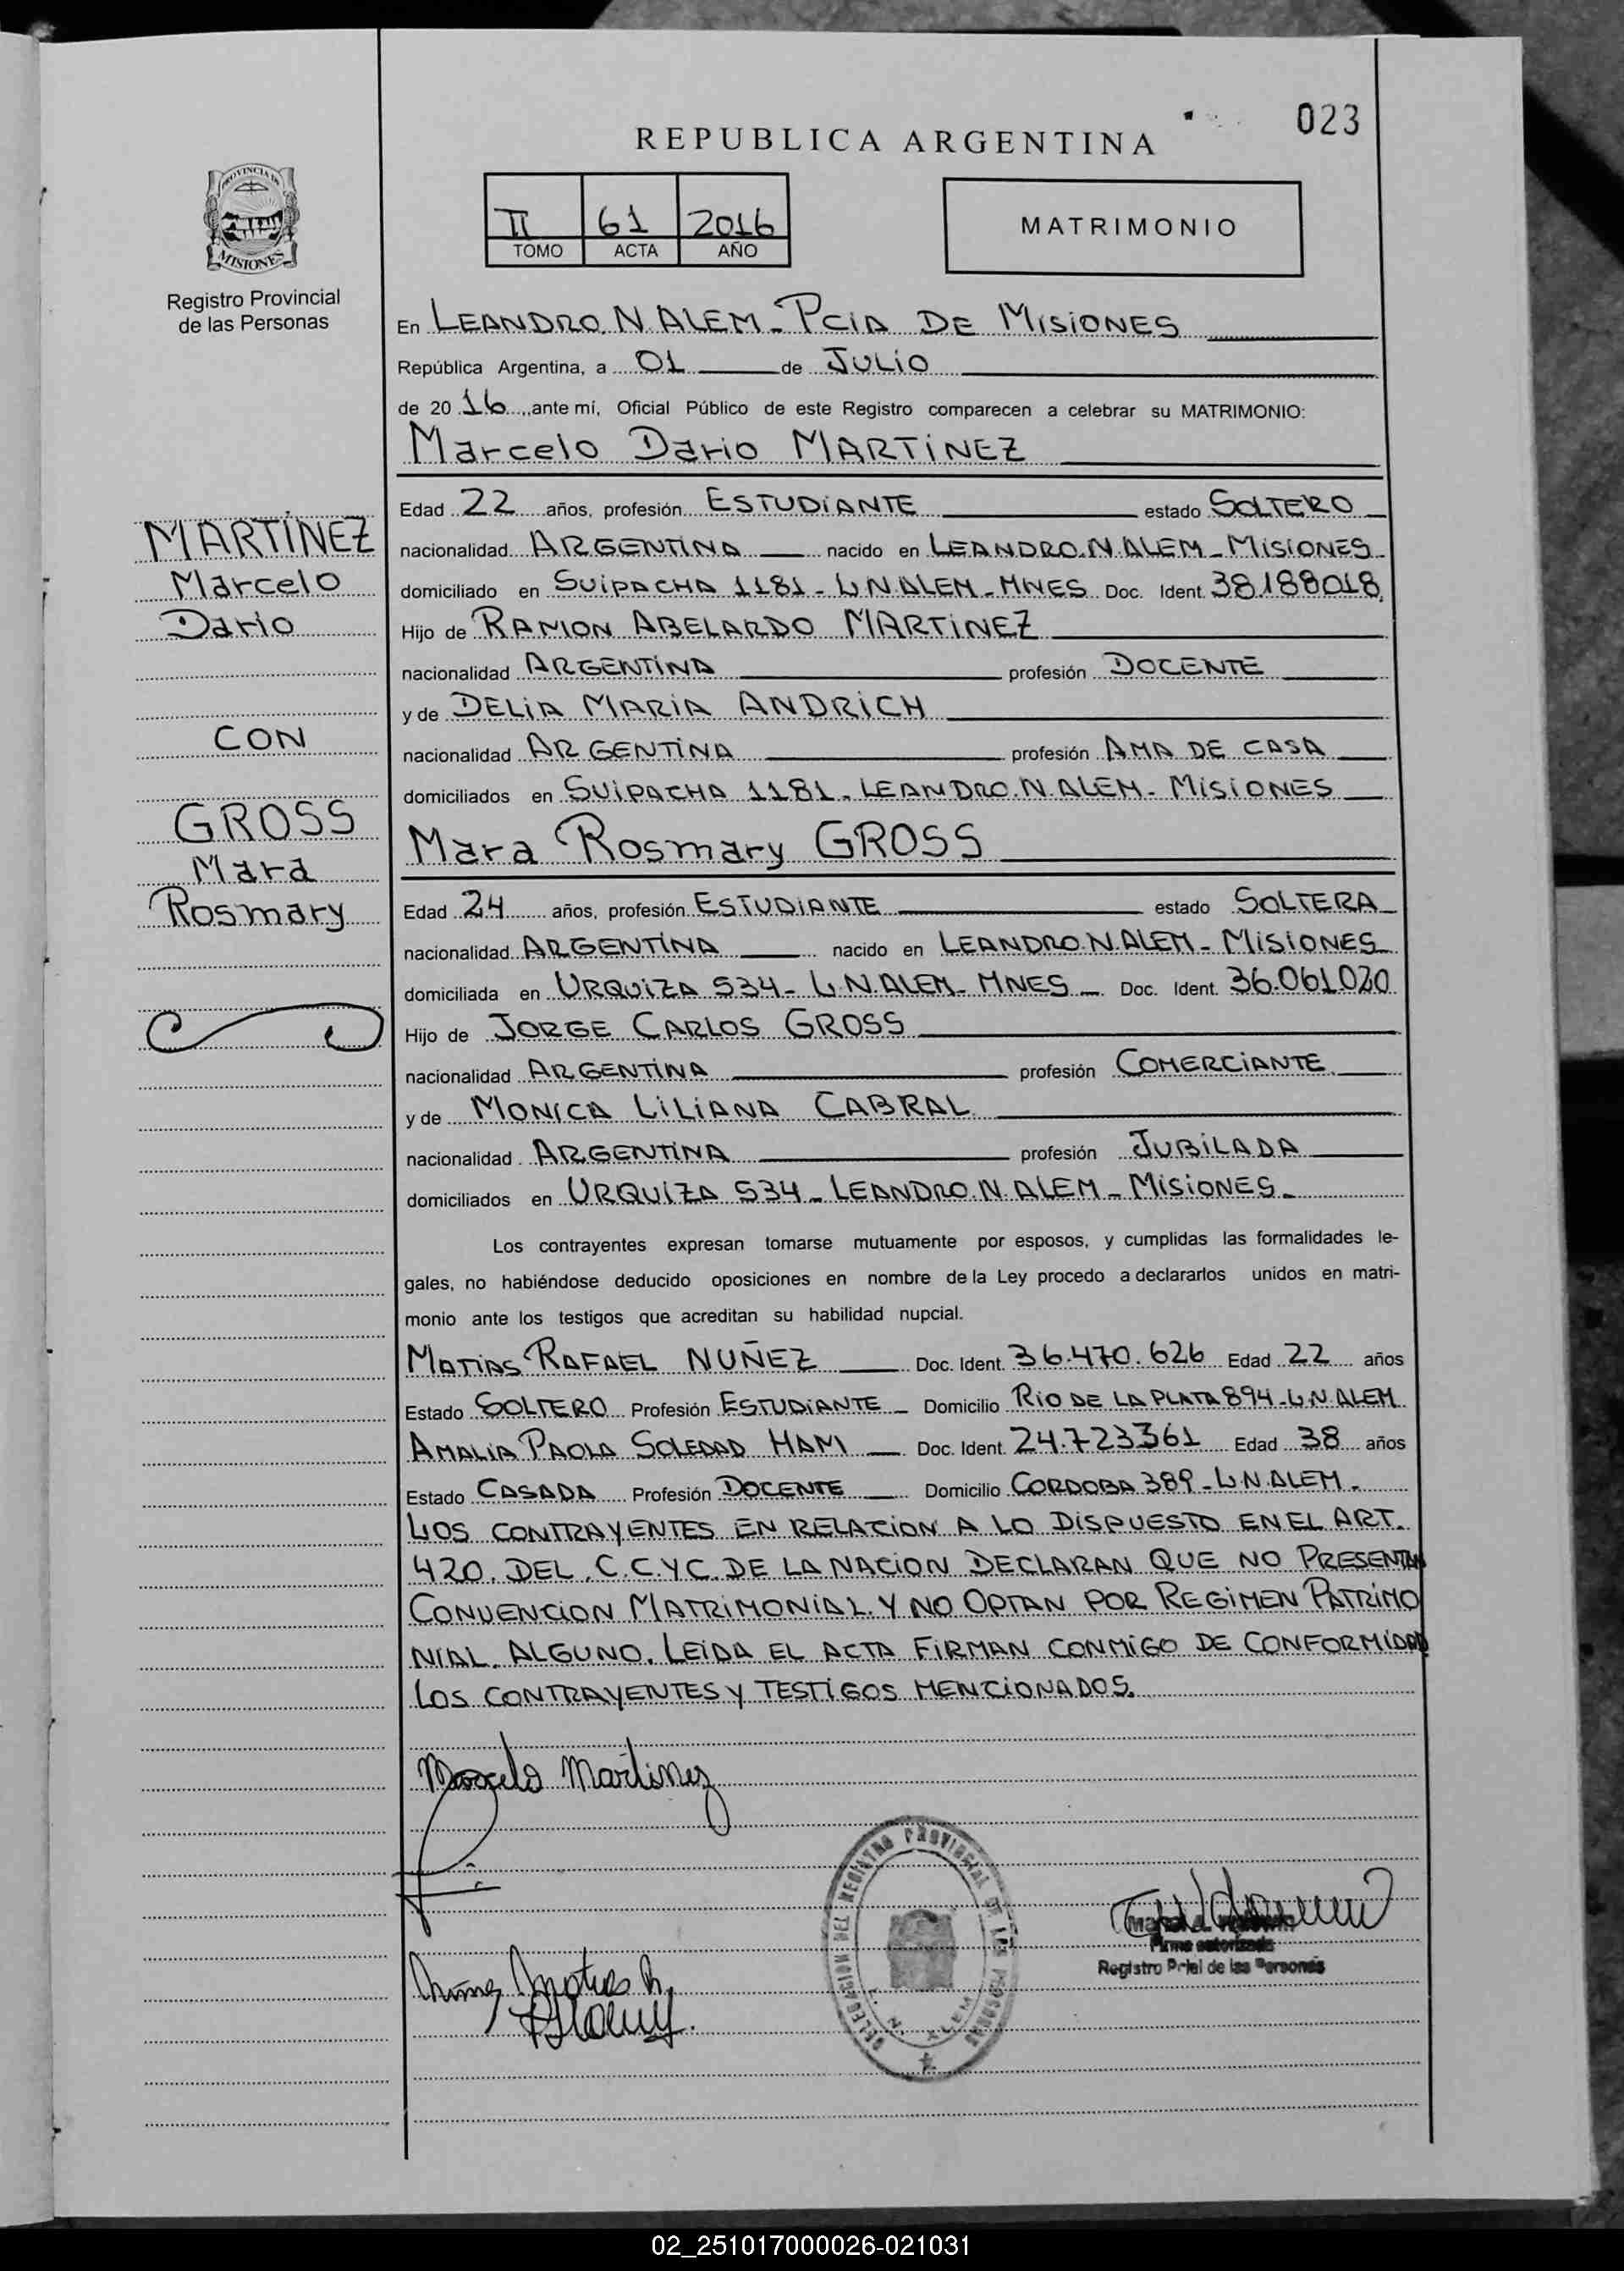 023
REPUBLICA ARGENTINA
PROVINCIA DE
MISIONES
Registro Provincial
de las Personas
II 61 2016
TOMO ACTA AÑO
MATRIMONIO
En LEANDRO.N.ALEM-PCIA DE MISIONES
República Argentina, a 01 de JULIO
de 20 16, ante mí, Oficial Público de este Registro comparecen a celebrar su MATRIMONIO:
Marcelo Dario MARTINEZ
Edad 22 años, profesión ESTUDIANTE estado SOLTERO
nacionalidad ARGENTINA nacido en LEANDRO.N.ALEM-MISIONES
domiciliado en SUIPACHA 1181-L.N.ALEM-MNES Doc. Ident. 38.188018
Hijo de RAMON ABELARDO MARTINEZ
nacionalidad ARGENTINA profesión DOCENTE
y de DELIA MARIA ANDRICH
nacionalidad ARGENTINA profesión AMA DE CASA
domiciliados en SUIPACHA 1181-LEANDRO.N.ALEM-MISIONES
Mara Rosmary GROSS
Edad 24 años, profesión ESTUDIANTE estado SOLTERA
nacionalidad ARGENTINA nacido en LEANDRO.N.ALEM-MISIONES
domiciliada en URQUIZA 534-L.N.ALEM-MNES- Doc. Ident. 36.061.020
Hijo de JORGE CARLOS GROSS
nacionalidad ARGENTINA profesión COMERCIANTE
y de MONICA LILIANA CABRAL
nacionalidad ARGENTINA profesión JUBILADA
domiciliados en URQUIZA 534-LEANDRO.N.ALEM-MISIONES-
Los contrayentes expresan tomarse mutuamente por esposos, y cumplidas las formalidades le-
gales, no habiéndose deducido oposiciones en nombre de la Ley procedo a declararlos unidos en matri-
monio ante los testigos que acreditan su habilidad nupcial.
MATIAS RAFAEL NUÑEZ Doc. Ident. 36.470.626 Edad 22 años
Estado SOLTERO Profesión ESTUDIANTE- Domicilio RIO DE LA PLATA 894-L.N.ALEM
AMALIA PAOLA SOLEDAD HAM Doc. Ident. 24.723361 Edad 38 años
Estado CASADA Profesión DOCENTE Domicilio CORDOBA 389-L.N.ALEM-
LOS CONTRAYENTES EN RELACION A LO DISPUESTO EN EL ART.
420. DEL C.C.YC. DE LA NACION DECLARAN QUE NO PRESENTAN
CONVENCION MATRIMONIAL. Y NO OPTAN POR REGIMEN PATRIMO
NIAL. ALGUNO. LEIDA EL ACTA FIRMAN CONMIGO DE CONFORMIDAD
LOS CONTRAYENTES Y TESTIGOS MENCIONADOS.
Marcelo Martinez
DELEGACION DEL REGISTRO PROVINCIAL DE LAS PERSONAS
L. N. ALEM
Firma autorizada
Registro Prial de las Personas
MARTINEZ
Marcelo
Dario
CON
GROSS
Mara
Rosmary
02_251017000026-021031